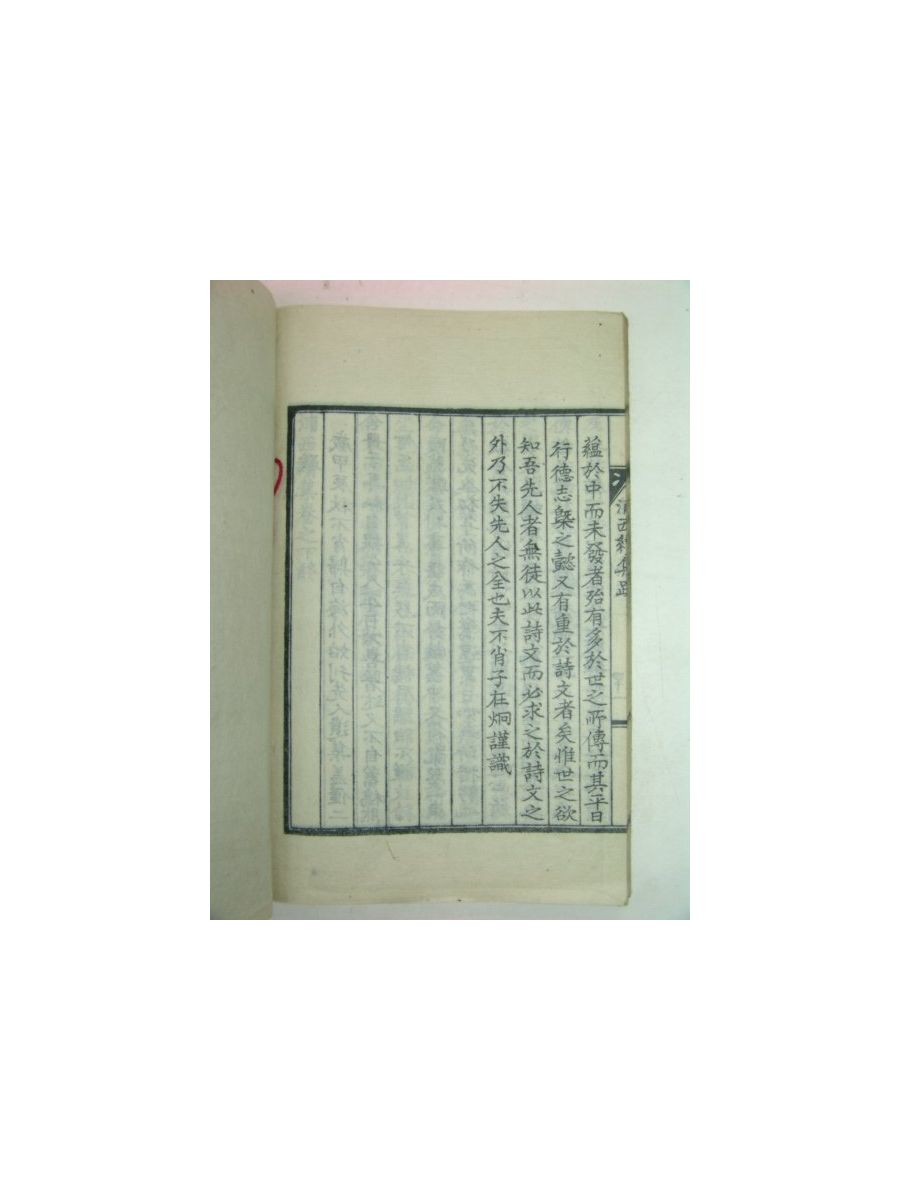 蘊於中而未發者殆有多於世之所傳而其平日
行德志槩之懿又有重於詩文者矣惟世之欲
知吾先人者無徒以此詩文而必求之於詩文之
外乃不失先人之全也夫不肖子在炯謹識
西雜集跋